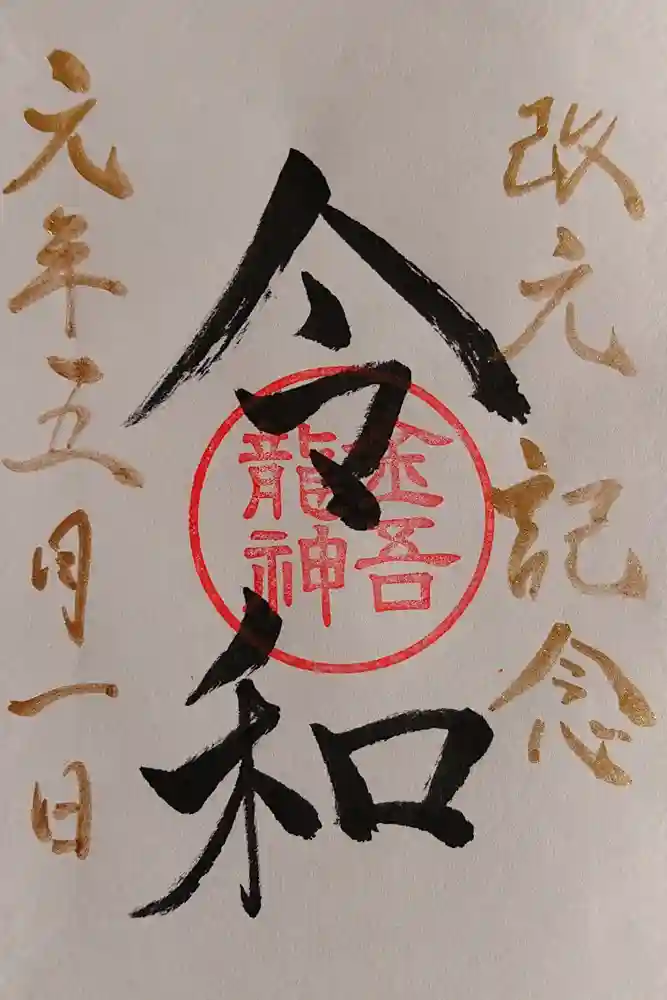 改元記念
令和
金吾龍神
元年五月一日